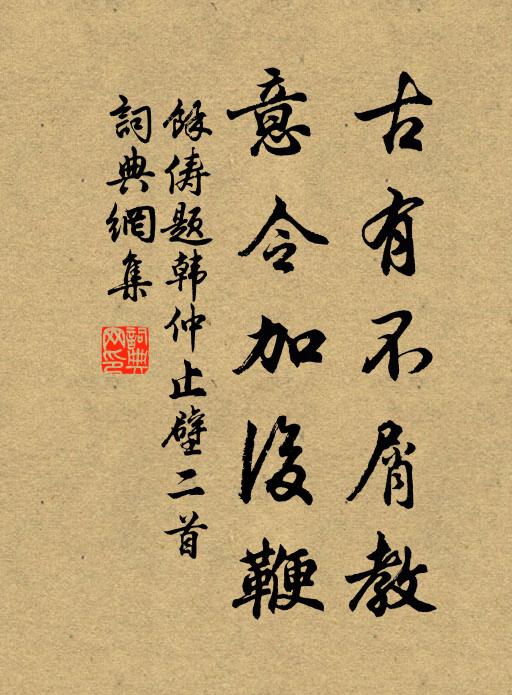 古有不屑教
意令加後鞭
馀俦题韩仲止壁二首
詞典網集
詞典网印